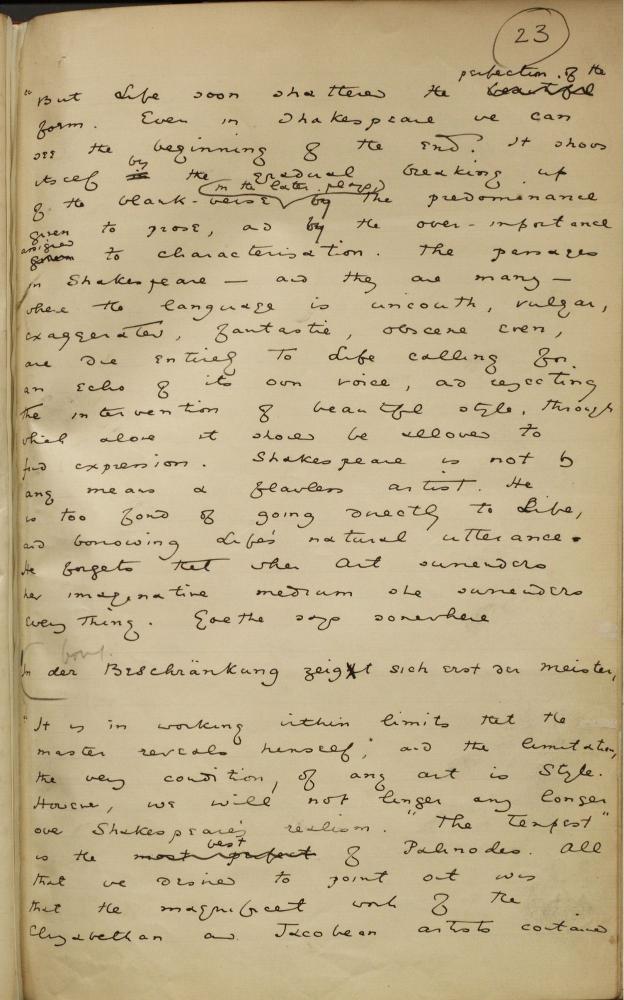 23
perfection of the
"But Life soon shattered the beautiful
form. Even in Shakespeare we can
see the beginning of the end. It shows
itself in by the gradual breaking up
of the blank-verse (in the later plays) by the predominance
given to prose, and by the over-importance
given assigned to characterisation. The passages
in Shakespeare — and they are many —
where the language is uncouth, vulgar,
exaggerated, fantastic, obscene even,
are due entirely to Life calling for
an echo of its own voice, and rejecting
the intervention of beautiful style, through
which alone it should be allowed to
find expression. Shakespeare is not by
any means a flawless artist. He
is too fond of going directly to Life,
and borrowing Life's natural utterance.
He forgets that when Art surrenders
her imaginative medium she surrenders
everything. Goethe says somewhere
In der Beschränkung zeigt sich erst der meister,
"It is in working within limits that the
master reveals himself," and the limitation,
the very condition, of any art is Style.
However, we will not linger any longer
over Shakespeare's realism. "The Tempest"
is the most perfect best of Palinodes. All
that we desired to point out was
that the magnificent work of the
Elizabethan and Jacobean artists contained